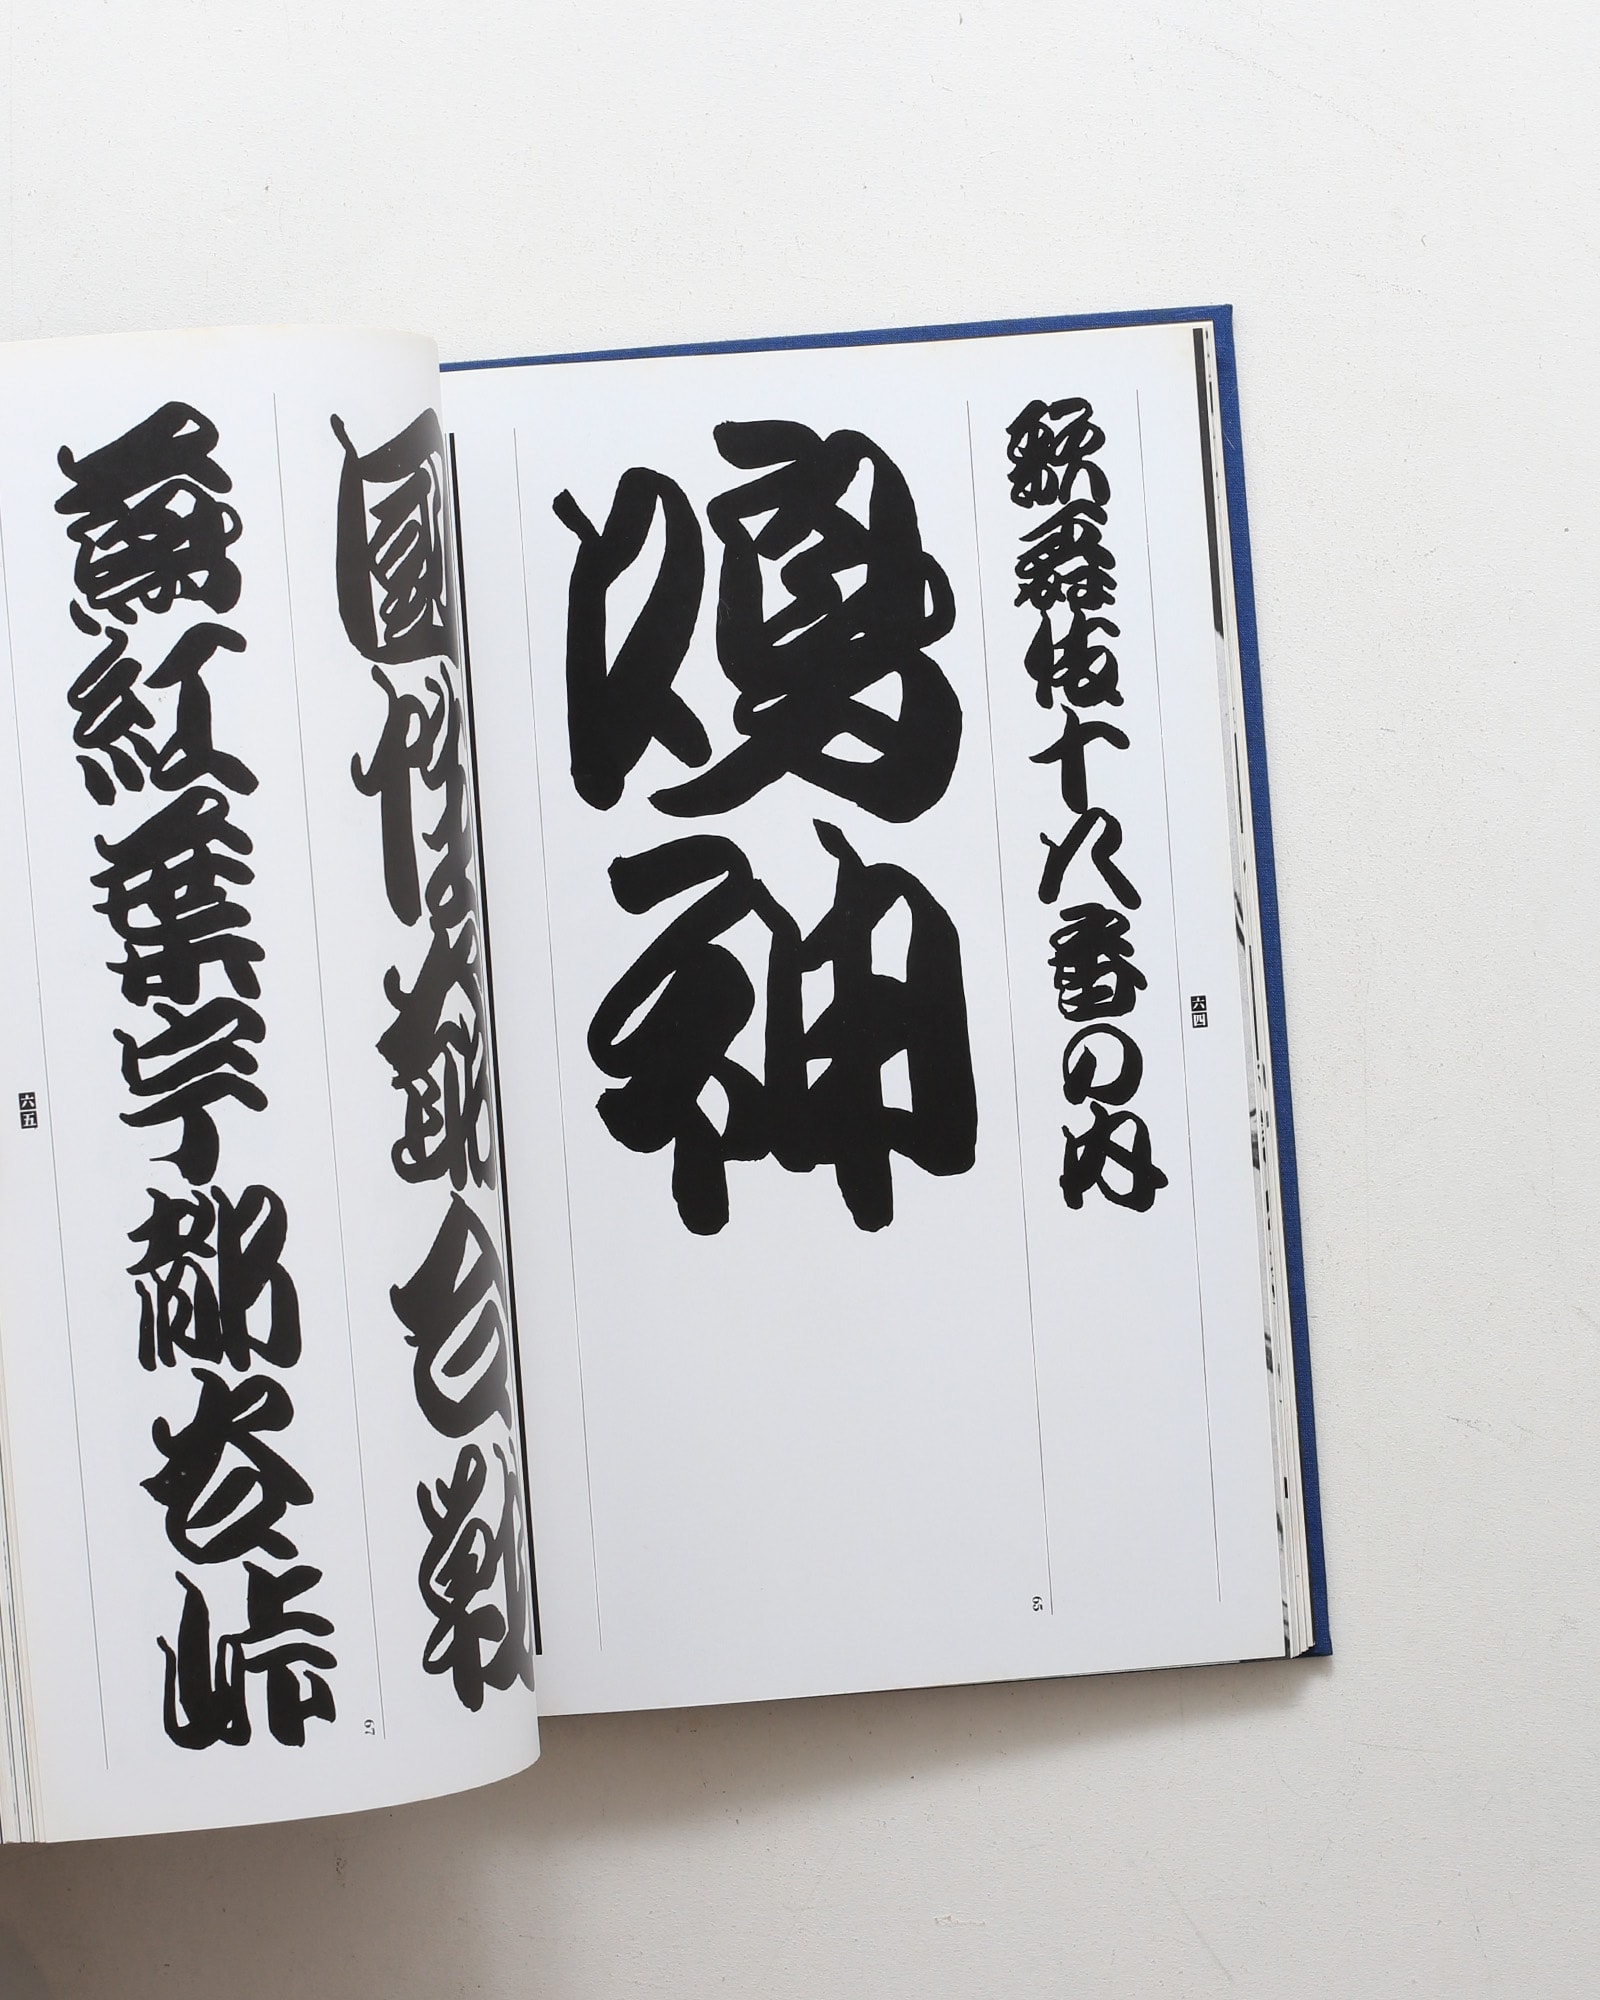 六四
歌舞伎十八番の内
65
鳴神
國性爺合戦
67
蔦紅葉宇都谷峠
六五